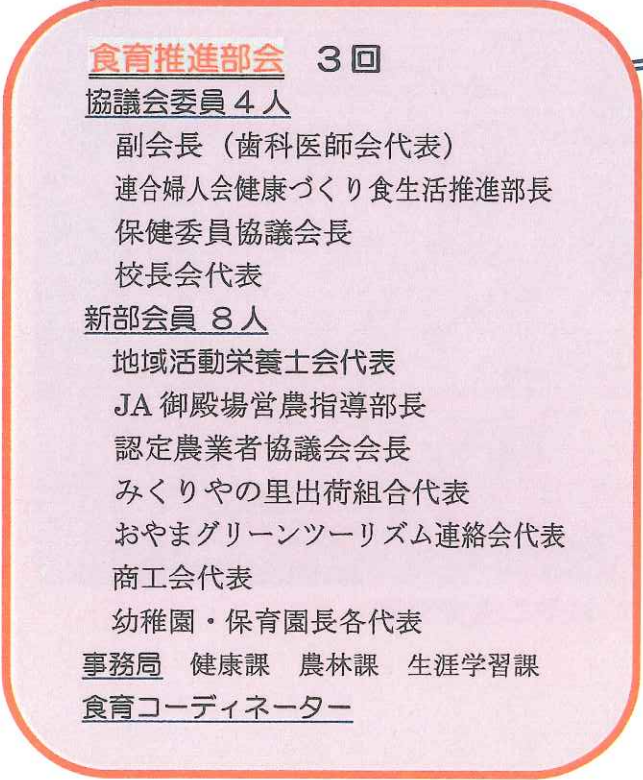 食育推進部会 3回
協議会委員4人
副会長(歯科医師会代表)
連合婦人会健康づくり食生活推進部長
保健委員協議会長
校長会代表
新部会員 8人
地域活動栄養士会代表
JA御殿場営農指導部長
認定農業者協議会会長
みくりやの里出荷組合代表
おやまグリーンツーリズム連絡会代表
商工会代表
幼稚園・保育園長各代表
事務局 健康課 農林課 生涯学習課
食育コーディネーター